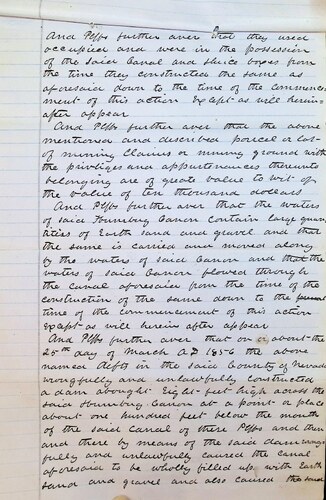 And Plffs further aver that they used
occupied and were in the possession
of the said Canal and sluice boxes from
the time they constructed the same as
aforesaid down to the time of the commence
ment of this action Except as will herein
after appear
And Plffs further aver that the above
mentioned and described parcel or lot
of mining Claims or mining ground with
the priviliges and appurtenances thereunto
belonging are of great value to wit of
the value of ten thousand dollars
And Plffs further aver that the waters
of said Canon Contain large quan
tities of Earth sand and gravel and that
the same is carried and moved along
by the waters of said Canon and that the
waters of said Canon flowed through
the Canal aforesaid from the time of the
construction of the same down to the
time of the commencement of this action
Except as will herein after appear
And Plffs further aver that on or about the
25th day of March AD 1856 the above
named defts in the said County of Nevada
wrongfully and unlawfully constructed
a dam abought Eight feet high across the
said Canon at a point or place
about one hundred feet below the mouth
of the said Canal of these Plffs and then
and there by means of the said dam wrong
fully and unlawfully caused the Canal
aforesaid to be wholly filled up with Earth
sand and gravel and also caused the sand